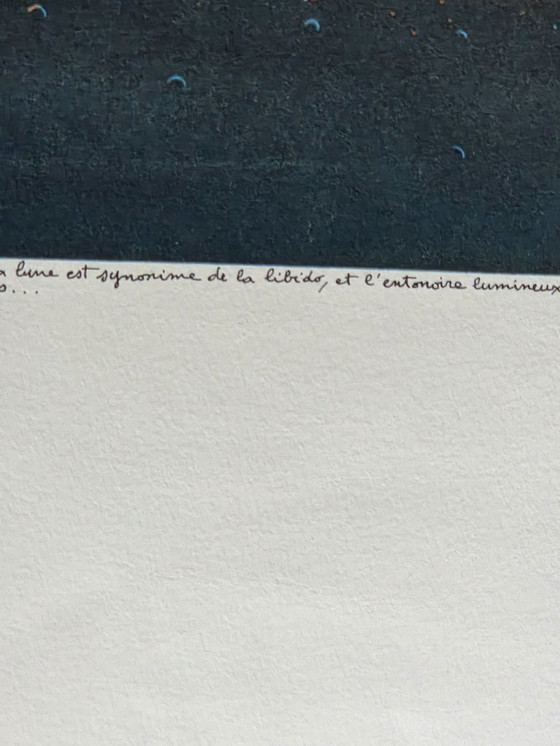 lune est synonime de la libido, et l'entonoire lumineux
...